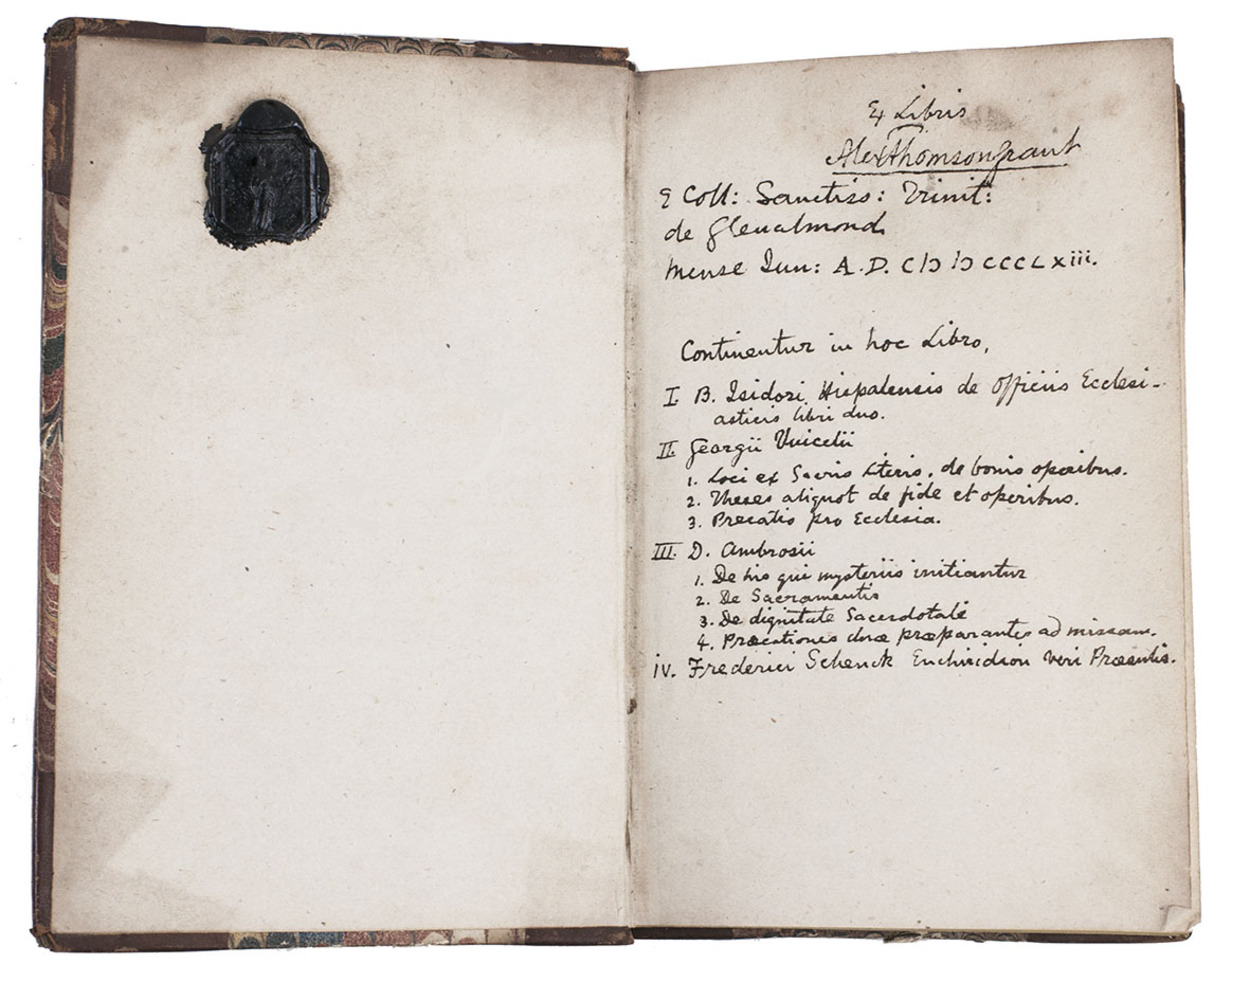 Ex Libris
Alex Thomson Grant
E Coll: Sanctiss: Trinit:
de Glenalmond
Mense Jun: A.D. CIƆ IƆCCCCLXiii.
Continentur in hoc Libro,
I. B. Isidori Hispalensis de Officiis Ecclesi-
asticis libri duo.
II. Georgii Vuicelii
1. Loci ex Sacris Literis, de bonis operibus.
2. Theses aliquot de fide et operibus.
3. Precatio pro Ecclesia.
III. D. Ambrosii
1. De his qui mysteriis initiantur
2. De Sacramentis
3. De dignitate Sacerdotale
4. Præcationes duæ præparantes ad missam.
iv. Frederici Schenck Enchiridion Veri Præsulis.